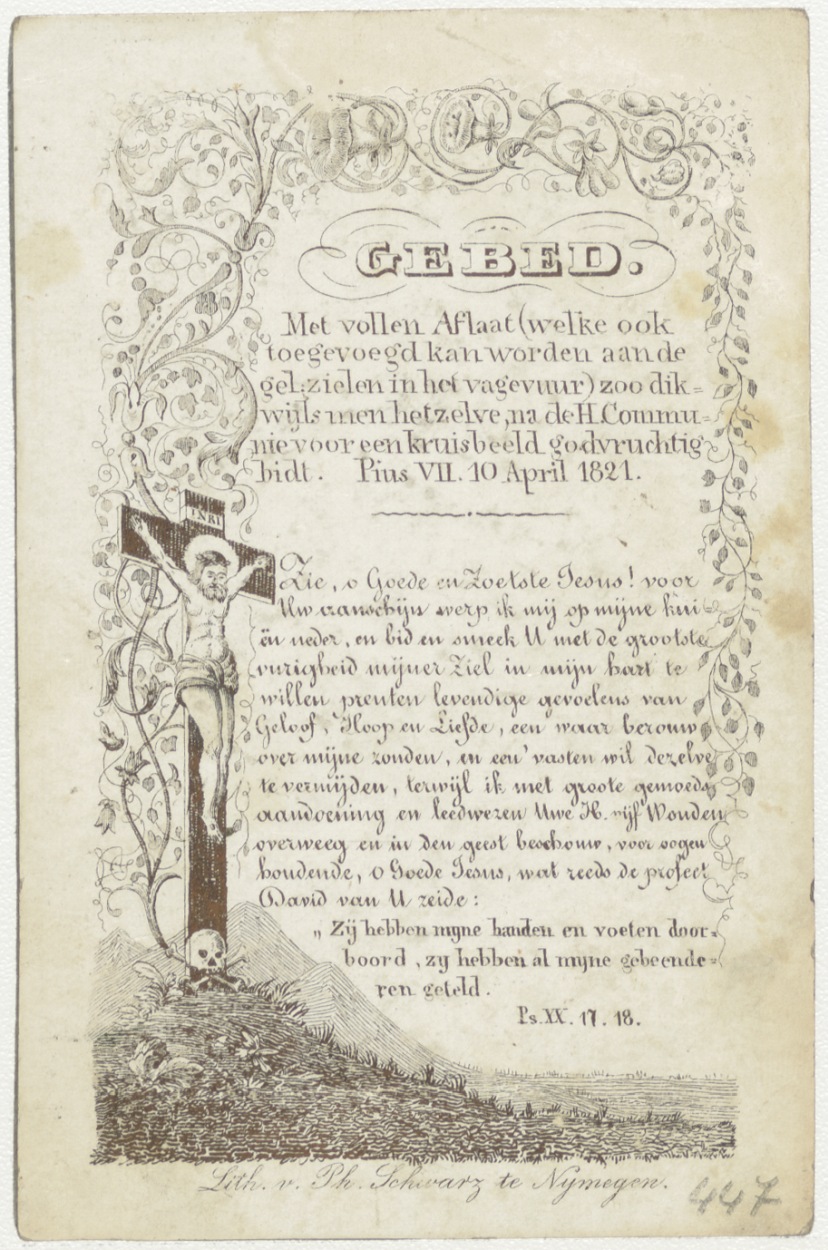 GEBED.
Met vollen Aflaat (welke ook
toegevoegd kan worden aan de
gel: zielen in het vagevuur) zoo dik=
wijls men hetzelve, na de H. Commu=
nie voor een kruisbeeld godvruchtig
bidt. Pius VII. 10 April 1821.
INRI
Zie, o Goede en Zoetste Jesus! voor
Uw aanschijn werp ik mij op mijne kni
ën neder, en bid en smeek U met de grootste
vurigheid mijner Ziel in mijn hart te
willen prenten levendige gevoelens van
Geloof, Hoop en Liefde, een waar berouw
over mijne zonden, en een' vasten wil dezelve
te vermijden, terwijl ik met groote gemoeds
aandoening en leedwezen Uwe H. vijf Wonden
overweeg en in den geest beschouw, voor oogen
houdende, o Goede Jesus, wat reeds de profeet
David van U zeide:
„ Zij hebben myne handen en voeten door=
boord, zy hebben al myne gebeende=
ren geteld.
Ps. XX. 17. 18.
Lith. v. Ph. Schwarz te Nymegen.
447